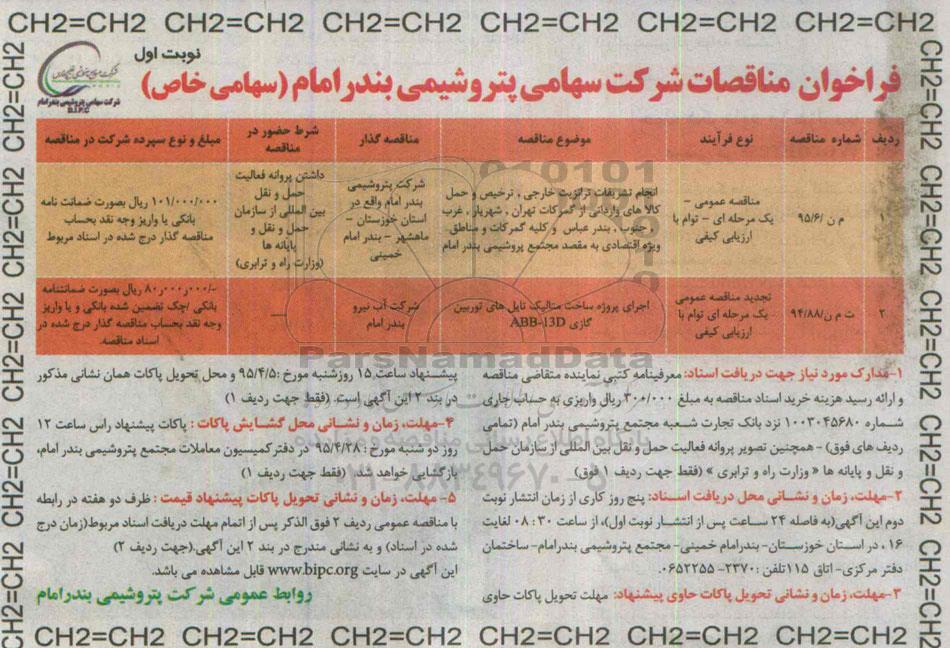 CH2=CH2 CH2=CH2 CH2=CH2 CH2=CH2 CH2=CH2 CH2=CH2
نوبت اول
فراخوان مناقصات شرکت سهامی پتروشیمی بندر امام (سهامی خاص)
شرکت سهامی پتروشیمی بندرامام
B.I.P.C
ردیف شماره مناقصه نوع فرآیند موضوع مناقصه مناقصه گذار شرط حضور در مناقصه مبلغ و نوع سپرده شرکت در مناقصه
۱ م ن /۹۵/۶
مناقصه عمومی –
یک مرحله ای – توام با
ارزیابی کیفی
انجام تشریفات ترانزیت خارجی , ترخیص و حمل
کالا های وارداتی از گمرکات تهران , شهریار , غرب
, جنوب , بندر عباس و کلیه گمرکات و مناطق
ویژه اقتصادی به مقصد مجتمع پتروشیمی بندر امام
شرکت پتروشیمی
بندر امام واقع در
استان خوزستان –
ماهشهر – بندر امام
خمینی
داشتن پروانه فعالیت
حمل و نقل
بین المللی از سازمان
حمل و نقل و
پایانه ها
(وزارت راه و ترابری)
۱۰۱/۰۰۰/۰۰۰ ریال بصورت ضمانت نامه
بانکی یا واریز وجه نقد بحساب
مناقصه گذار درج شده در اسناد مربوط
۲ ت م ن/۹۴/۸۸
تجدید مناقصه عمومی
یک مرحله ای توام با
ارزیابی کیفی
اجرای پروژه ساخت متالیک تایل های توربین
گازی ABB-13D
شرکت آب نیرو
بندر امام
—
۸۰ر۰۰۰ر۰۰۰/- ریال بصورت ضمانتنامه
بانکی /چک تضمین شده بانکی و یا واریز
وجه نقد بحساب مناقصه گذار درج شده در
اسناد مناقصه.
۱-مدارک مورد نیاز جهت دریافت اسناد: معرفینامه کتبی نماینده متقاضی مناقصه
و ارائه رسید هزینه خرید اسناد مناقصه به مبلغ ۳۰۰/۰۰۰ ریال واریزی به حساب جاری
شماره ۱۰۰۳۰۴۵۶۸۰ نزد بانک تجارت شعبه مجتمع پتروشیمی بندر امام (تمامی
ردیف های فوق) – همچنین تصویر پروانه فعالیت حمل و نقل بین المللی از سازمان حمل
و نقل و پایانه ها « وزارت راه و ترابری » (فقط جهت ردیف ۱ فوق)
۲-مهلت، زمان و نشانی محل دریافت اسناد: پنج روز کاری از زمان انتشار نوبت
دوم این آگهی(به فاصله ۲۴ ساعت پس از انتشار نوبت اول)، از ساعت ۳۰ : ۰۸ لغایت
۱۶ ، در استان خوزستان– بندرامام خمینی– مجتمع پتروشیمی بندرامام– ساختمان
دفتر مرکزی– اتاق ۱۱۵تلفن :۲۳۷۰– ۰۶۵۲۲۵۵.
۳-مهلت، زمان و نشانی تحویل پاکات حاوی پیشنهاد: مهلت تحویل پاکات حاوی
پیشنهاد ساعت ۱۵ روزشنبه مورخ :۹۵/۴/۵ و محل تحویل پاکات همان نشانی مذکور
در بند ۲ این آگهی است. (فقط جهت ردیف ۱)
۴-مهلت، زمان و نشانی محل گشایش پاکات : پاکات پیشنهاد راس ساعت ۱۲
روز دو شنبه مورخ : ۹۵/۴/۲۸ در دفتر کمیسیون معاملات مجتمع پتروشیمی بندر امام،
بازگشایی خواهد شد. (فقط جهت ردیف ۱)
۵- مهلت، زمان و نشانی تحویل پاکات پیشنهاد قیمت : ظرف دو هفته در رابطه
با مناقصه عمومی ردیف ۲ فوق الذکر پس از اتمام مهلت دریافت اسناد مربوط(زمان درج
شده در اسناد) و به نشانی مندرج در بند ۲ این آگهی.(جهت ردیف ۲)
این آگهی در سایت www.bipc.org قابل مشاهده می باشد.
روابط عمومی شرکت پتروشیمی بندرامام
ParsNamadData
۰۲۱-۸۸۳۴۹۶۷۰-۵
CH2=CH2 CH2=CH2 CH2=CH2 CH2=CH2 CH2=CH2 CH2=CH2